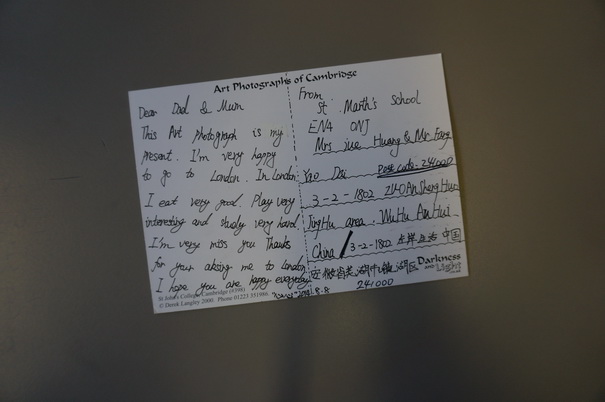 Art Photographs of Cambridge
Dear Dad & Mum
This Art photograph is my
present. I'm very happy
to go to London. In London:
I eat very good. Play very
interesting and study very hard.
I'm very miss you Thanks
for your asking me to London
I hope you are happy everyday.
St John's College, Cambridge (#398)
© Derek Langley 2000. Phone 01223 551986
From
St. Marth's School
EN4 0NJ
Mrs Huang & Mr Fang
Yao Dsi Post code: 241000
3-2-1802 ZUOAn ShengHuo
JingHu area. WuHu AnHui
China / 3-2-1802 左岸生活 中国
安徽省芜湖市镜湖区
241000
Darkness
and Light